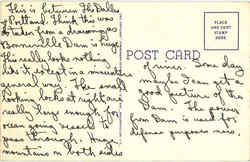 This is between The Dalles
& Portland. I think this was
taken from a drawing as
Bonneville Dam is huge
This really looks nothing
like it, except in a
general way. The small
looking locks at right are
really large enough for
ocean going vessels to
pass through. And
mountains on both sides
PLACE
ONE CENT
STAMP
HERE
POST CARD
of river. Some day
maybe I can get a
good picture of the
dam. The power
from Dam is used for
defense purposes now.